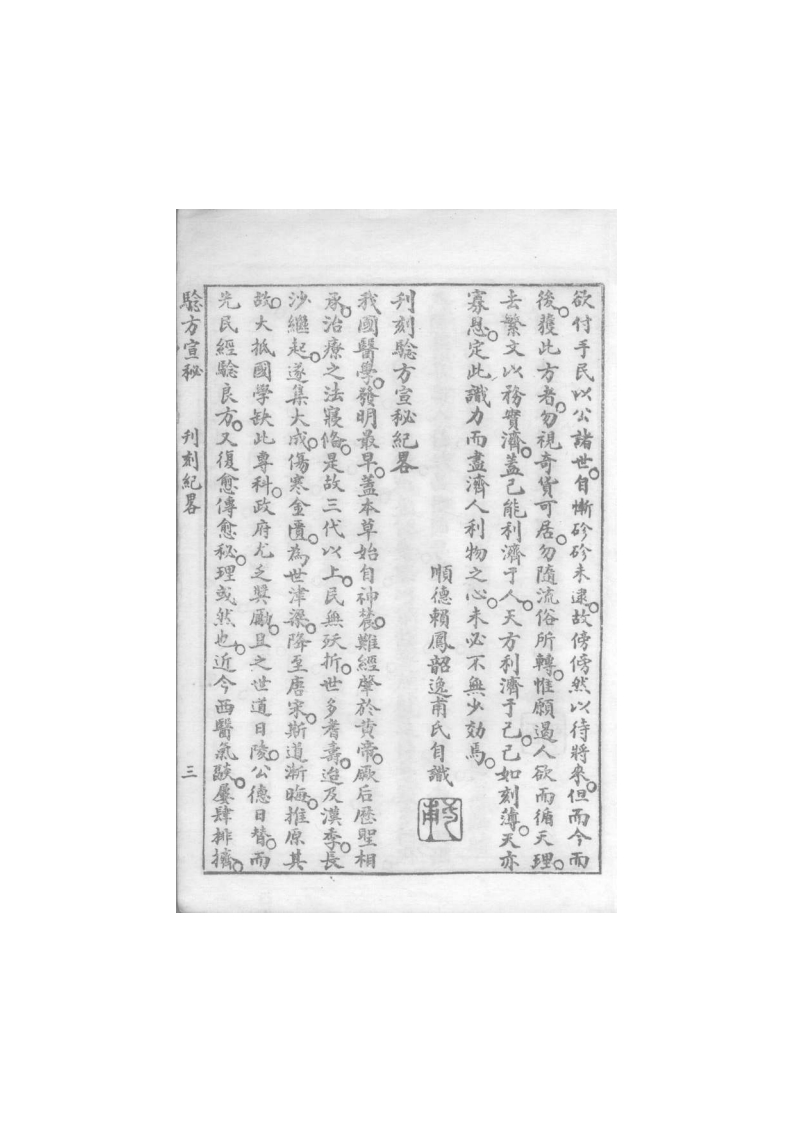 欲付手民以公諸世。自慚矽矽未逮。故傍傍然以待將來。但而今而
後。獲此方者。勿視奇貨可居。勿隨流俗所轉。惟願遏人欲而循天理。
去繁文以務實濟。蓋己能利濟于人。天方利濟于己。己如刻薄。天亦
寡恩。定此識力而盡濟人利物之心。未必不無少効焉。
順德賴鳳韶逸甫氏自識
刊刻騐方宣秘紀畧
我國醫學。發明最早。蓋本草始自神農。難經肇於黄帝。厥后歷聖相
承。治療之法寢俻。是故三代以上。民無殀折。世多耆壽。迨及漢季。長
沙繼起。遂集大成。傷寒金匱。為世津梁。降至唐宋。斯道漸晦。推原其
故。大抵國學缺此專科。政府尤乏奬勵。且之世道日陵。公德日替。而
先民經騐良方。又復愈傳愈秘。理或然也。近今西醫氣燄。屢肆排擠。
騐方宣秘 刊刻紀畧 三